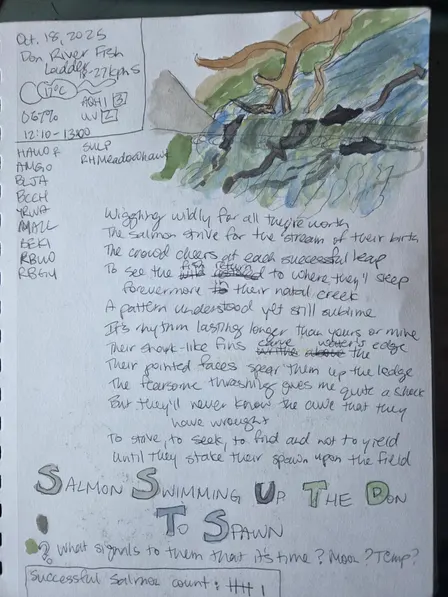 Oct. 18, 2025
Don River Fish
Ladder 18-27kph S
17°C
AQHI 3
067% UV 2
12:10-13:00
HAWO?
AMGO
BLJA
BCCH
YRWA
MALL
BEKI
RBWO
RBGU
SULP
RHMeadowhawk
Wiggling wildly for all they're worth
The salmon strive for the stream of their birth
The crowd cheers at each successful leap
To see the to where they'll sleep
forevermore their natal creek
A pattern understood yet still sublime
It's rhythm lasting longer than yours or mine
Their shark-like fins carve water's edge
writhe above the
Their pointed faces spear them up the ledge
The fearsome thrashing gives me quite a shock
But they'll never know the awe that they
have wrought
To strive, to seek, to find and not to yield
Until they stake their spawn upon the field
SALMON SWIMMING UP THE DON
TO SPAWN
? What signals to them that it's time? Moon? Temp?
Successful Salmon count: 卌 I